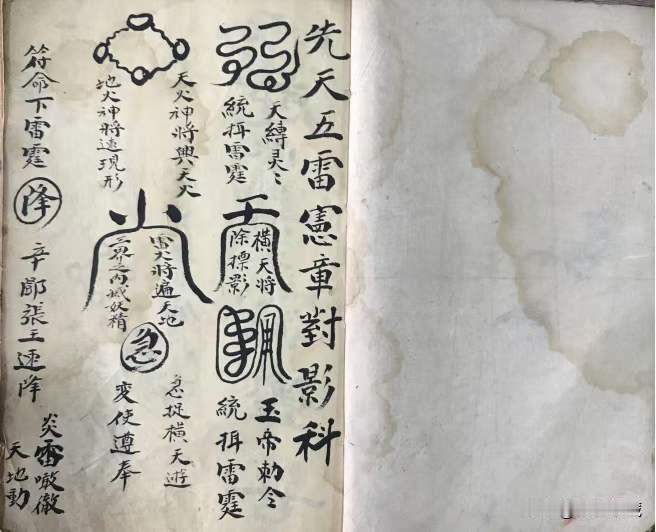 先天五雷憲章對影科
天縛灵〻
統挕雷霆
橫天將
除摽影
玉帝勅令
統挕雷霆
天火神將興天火
地火神將速現形
雷火將遍天地
三界之内滅妖精
急
急捉橫天遊
変使遵奉
符命下雷霆
降
辛鄧張王速降
炎雷
天地動